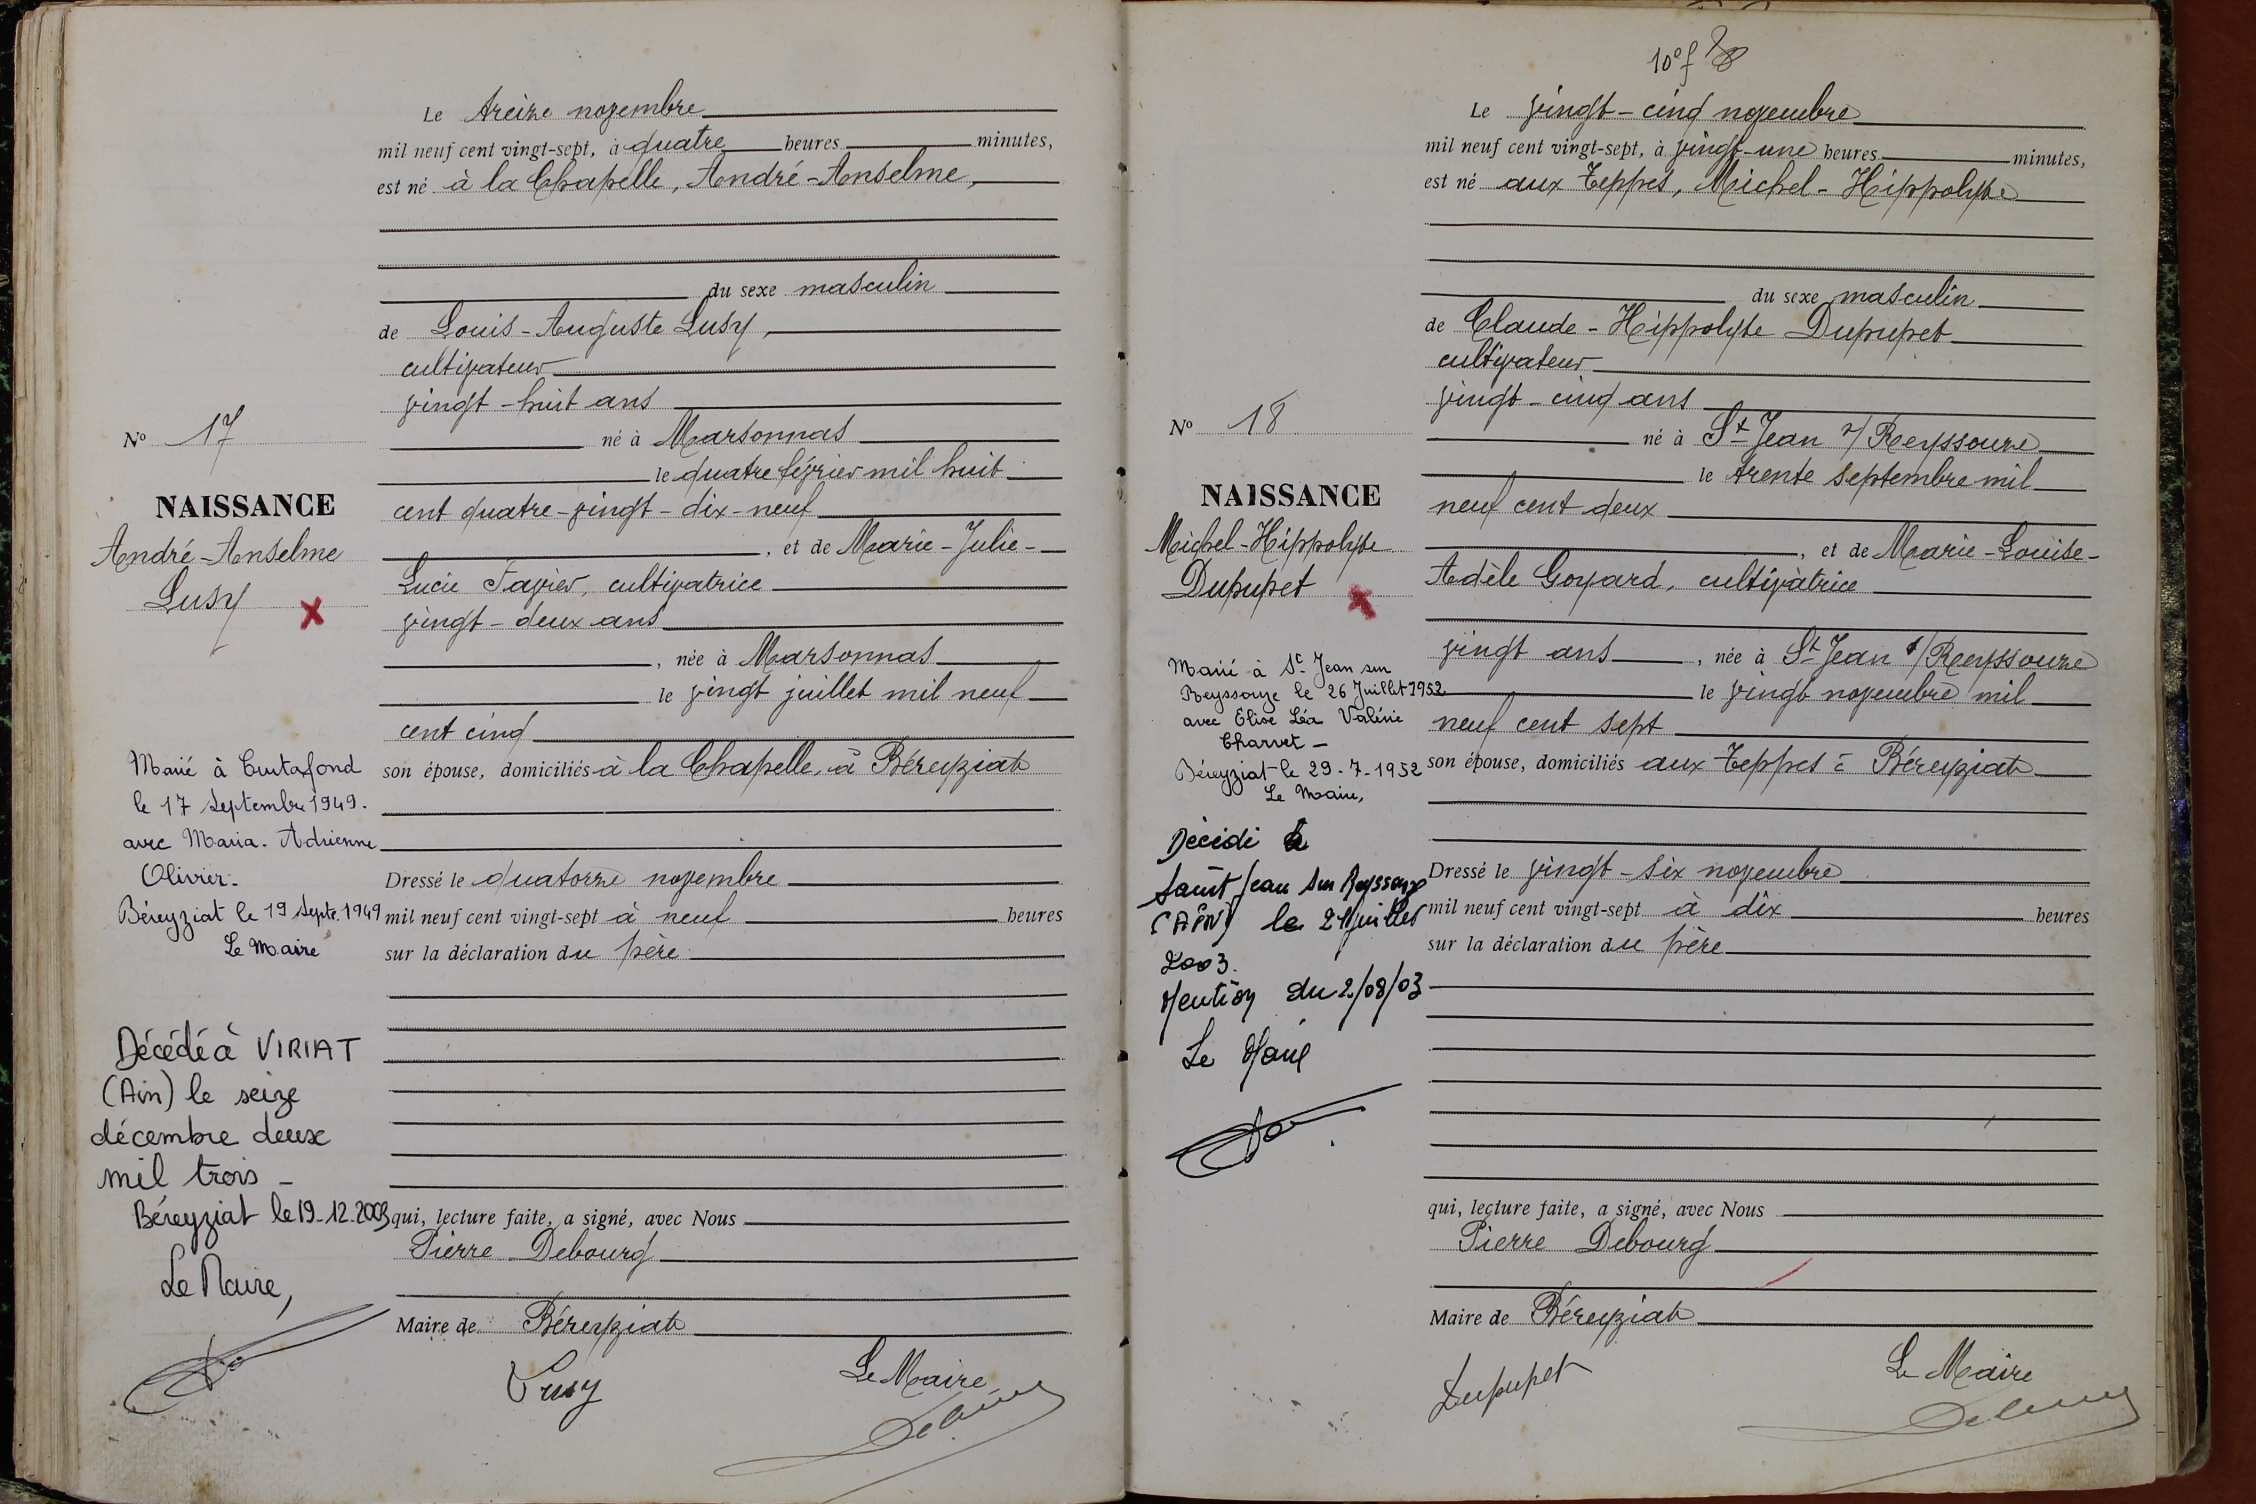 Le treize novembre
mil neuf cent vingt-sept, à quatre heures minutes,
est né à la Chapelle, André-Anselme,
du sexe masculin
de Louis-Auguste Lusy,
cultivateur
vingt-huit ans
né à Marsonnas
le quatre février mil huit
cent quatre-vingt-dix-neuf
, et de Marie-Julie-
Lucie Favier, cultivatrice
vingt-deux ans
, née à Marsonnas
le vingt juillet mil neuf
cent cinq
son épouse, domiciliés à la Chapelle, à Béreyziat
Dressé le quatorze novembre
mil neuf cent vingt-sept à neuf heures
sur la déclaration du père
qui, lecture faite, a signé, avec Nous
Pierre Debourg
Maire de Béreyziat
Le Maire
Lusy
No 17
NAISSANCE
André-Anselme
Lusy
Marié à Curtafond
le 17 septembre 1949.
avec Maria. Adrienne
Olivier.
Béreyziat le 19 septe. 1949
Le Maire
Décédé à VIRIAT
(Ain) le seize
décembre deux
mil trois -
Béreyziat le 19-12-2003
Le Maire,
10e f
Le vingt-cinq novembre
mil neuf cent vingt-sept, à vingt-une heures minutes,
est né aux Teppes, Michel-Hippolyte
du sexe masculin
de Claude-Hippolyte Dupupet
cultivateur
vingt-cinq ans
né à St Jean s/Reyssouze
le trente septembre mil
neuf cent deux
, et de Marie-Louise-
Adèle Goyard, cultivatrice
vingt ans , née à St Jean s/Reyssouze
le vingt novembre mil
neuf cent sept
son épouse, domiciliés aux Teppes à Béreyziat
Dressé le vingt-six novembre
mil neuf cent vingt-sept à dix heures
sur la déclaration du père
qui, lecture faite, a signé, avec Nous
Pierre Debourg
Maire de Béreyziat
Le Maire
Dupupet
No 18
NAISSANCE
Michel-Hippolyte
Dupupet
Marié à St Jean sur
Reyssouze le 26 Juillet 1952
avec Elise Léa Valérie
Charvet -
Béreyziat le 29-7-1952
Le Maire,
Décédé à
Saint Jean sur Reyssouze
(AIN) le juillet
2003.
Mention du 2/08/03
Le Maire